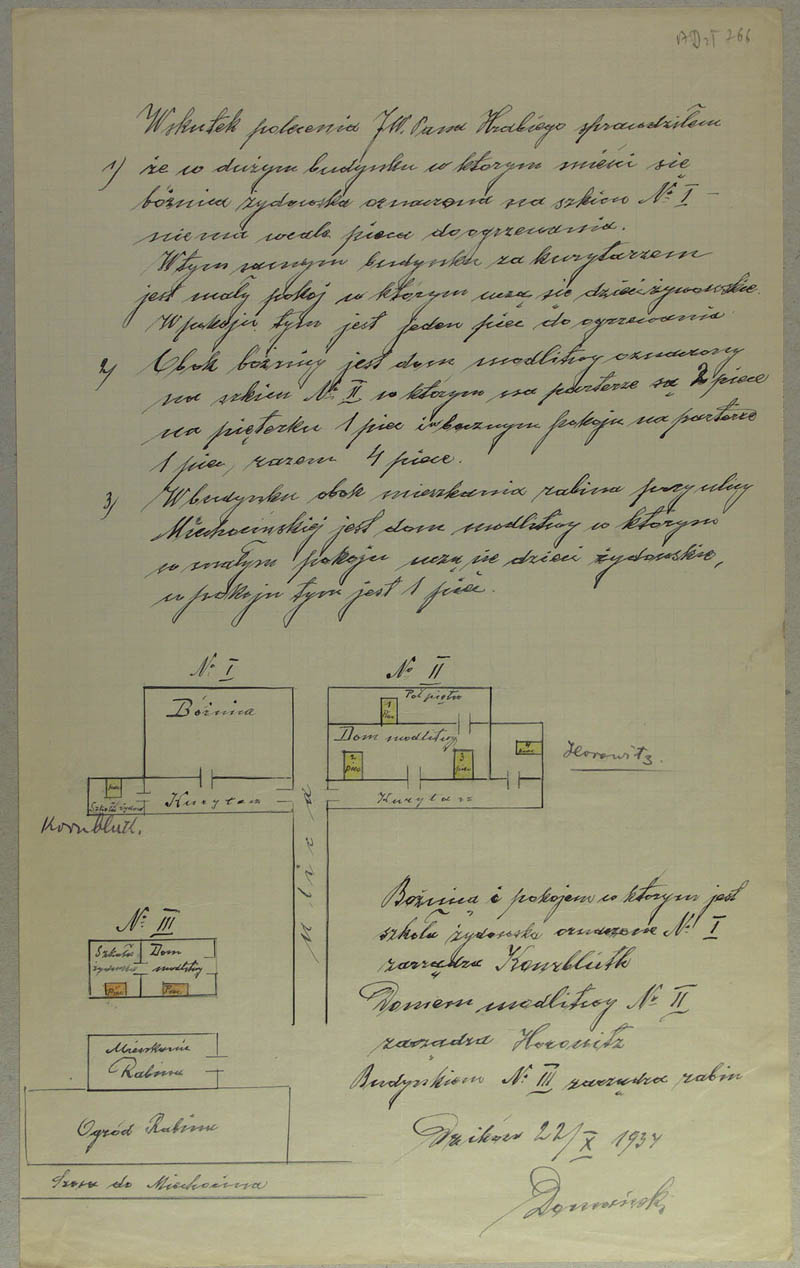 ADzT 266
Wskutek polecenia JW. Pana Hrabiego sprawdziłem
1) że w dużym budynku w którym mieści się
bóżnica żydowska oznaczona na szkicu № I –
niema wcale pieca do ogrzewania.
W tym samym budynku za kurytarzem
jest mały pokój w którym uczą się dzieci żydowskie.
W pokoju tym jest jeden piec do ogrzewania
2) Obok bóżnicy jest dom modlitwy oznaczony
na szkicu № II w którym na parterze są 2 piece
na pięterku 1 piec i w bocznym pokoju na parterze
1 piec, razem 4 piece.
3) W budynku obok mieszkania rabina przy ulicy
Miechocińskiej jest dom modlitwy w którym
w małym pokoju uczą się dzieci żydowskie,
w pokoju tym jest 1 piec.
№ I
№ II
Bóżnica
Pół piętro
1 Piec
Dom modlitwy
2 piec
3 piec
4 piec
Horowitz.
piec
Szkoła żydow
Kurytarz
Kurytarz
Kornblutt.
Ulica
№ III
Szkoła żydowska
Dom modlitwy
Piec
Piec
Mieszkanie
Rabina
Ogród Rabina
Szosa do Miechocina
Bóżnica i pokojem w którym jest
szkoła żydowska oznaczone № I
zarządza Kornblüth
Domem modlitwy № II
zarządza Horowitz
Budynkiem № III zarządza rabin
Dzików 22/X 1934